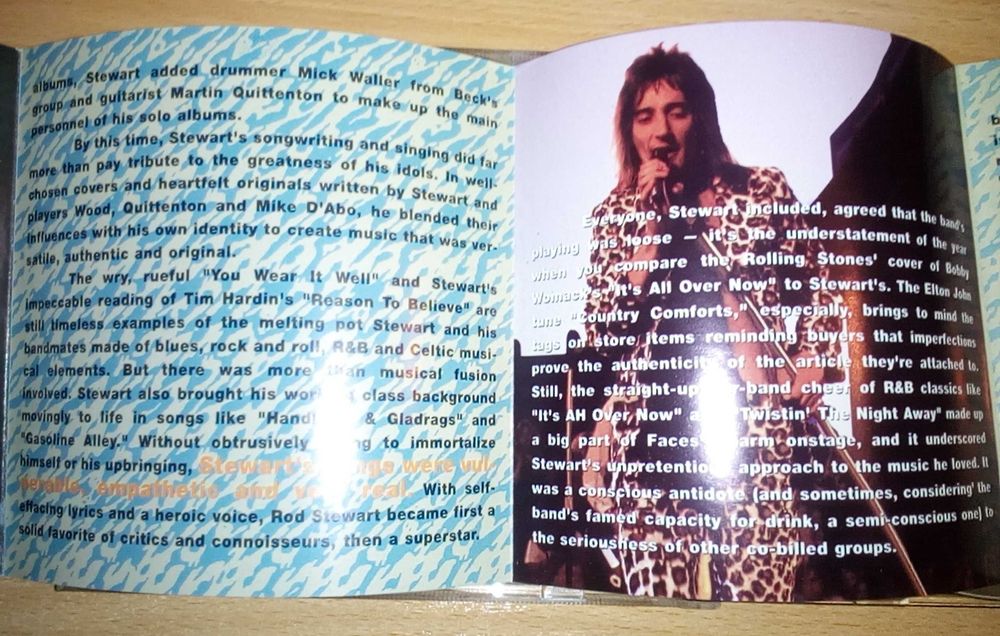 albums, Stewart added drummer Mick Waller from Beck's
group and guitarist Martin Quittenton to make up the main
personnel of his solo albums.
By this time, Stewart's songwriting and singing did far
more than pay tribute to the greatness of his idols. In well-
chosen covers and heartfelt originals written by Stewart and
players Wood, Quittenton and Mike D'Abo, he blended their
influences with his own identity to create music that was ver-
satile, authentic and original.
The wry, rueful "You Wear It Well" and Stewart's
impeccable reading of Tim Hardin's "Reason To Believe" are
still timeless examples of the melting pot Stewart and his
bandmates made of blues, rock and roll, R&B and Celtic musi-
cal elements. But there was more than musical fusion
involved. Stewart also brought his class background
movingly to life in songs like & Gladrags" and
"Gasoline Alley." Without obtrusively to immortalize
himself or his upbringing, Stewart's were vul-
nerable, empathetic and real. With self-
effacing lyrics and a heroic voice, Rod Stewart became first a
solid favorite of critics and connoisseurs, then a superstar.
Everyone, Stewart included, agreed that the band's
playing was loose – it's the understatement of the year
when you compare the Rolling Stones' cover of Bobby
Womack's "It's All Over Now" to Stewart's. The Elton John
tune "Country Comforts," especially, brings to mind the
tags on store items reminding buyers that imperfections
prove the authenticity of the article they're attached to.
Still, the cheer of R&B classics like
"It's AH Over Now" "Twistin' The Night Away" made up
a big part of Faces onstage, and it underscored
Stewart's approach to the music he loved. It
was a conscious antidote (and sometimes, considering' the
band's famed capacity for drink, a semi-conscious one) to
the seriousness of other co-billed groups.